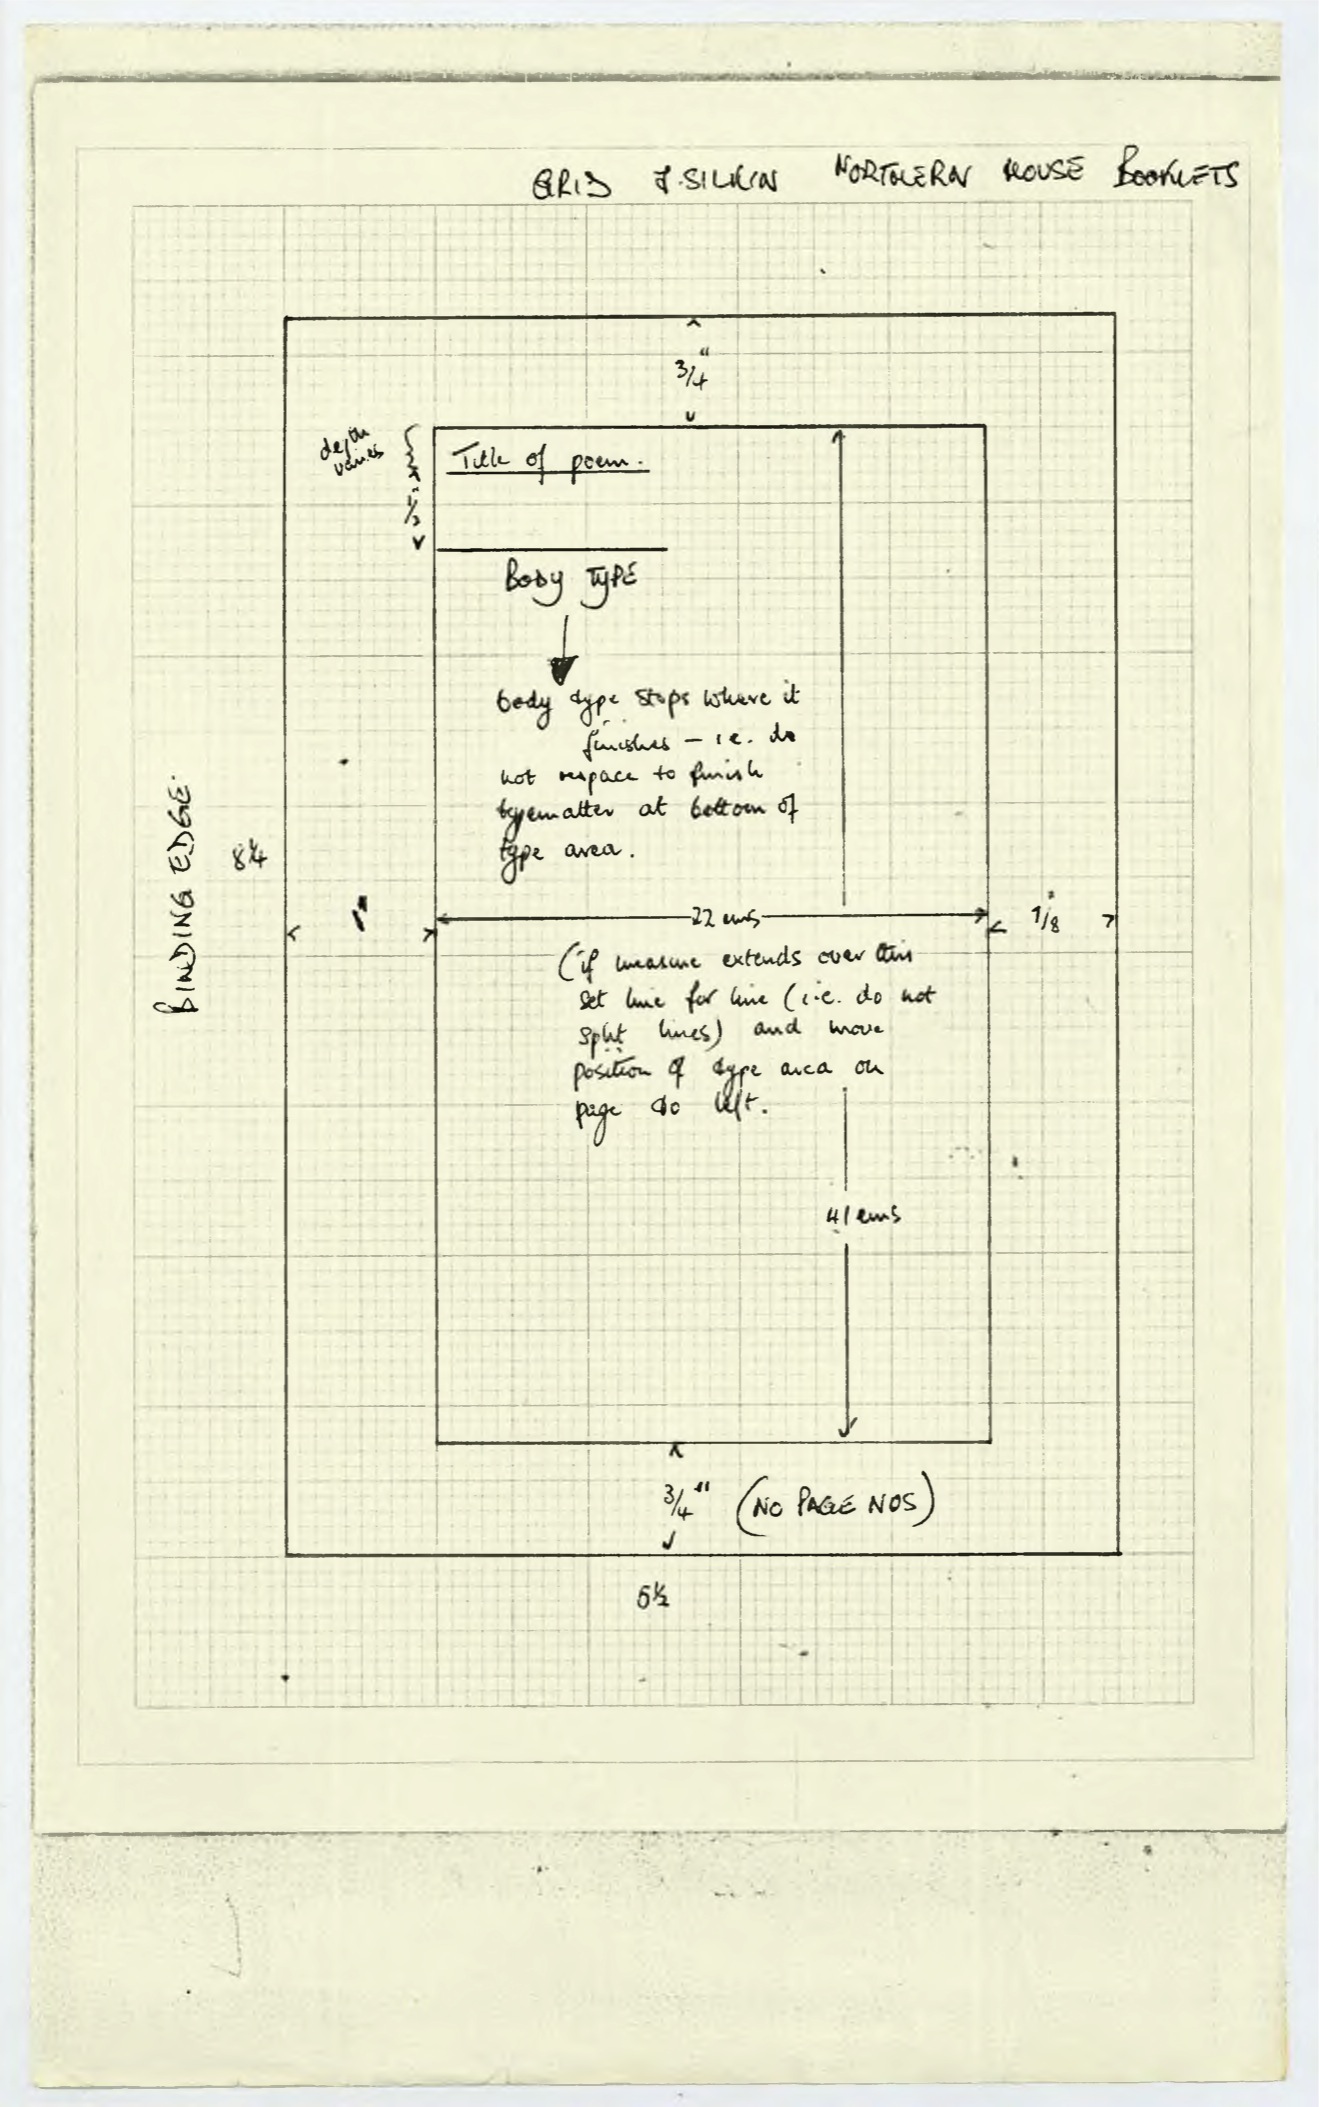 GRID J. SILKIN NORTHERN HOUSE BOOKLETS
3/4"
depth
varies
Title of poem.
1/2"
BODY TYPE
body type stops where it
finishes – i.e. do
not respace to finish
typematter at bottom of
type area.
BINDING EDGE.
8¼
1"
22 ems
7/8"
(if measure extends over this
set line for line (i.e. do not
split lines) and move
position of type area on
page to left.
41 ems
3/4" (NO PAGE NOS)
5½